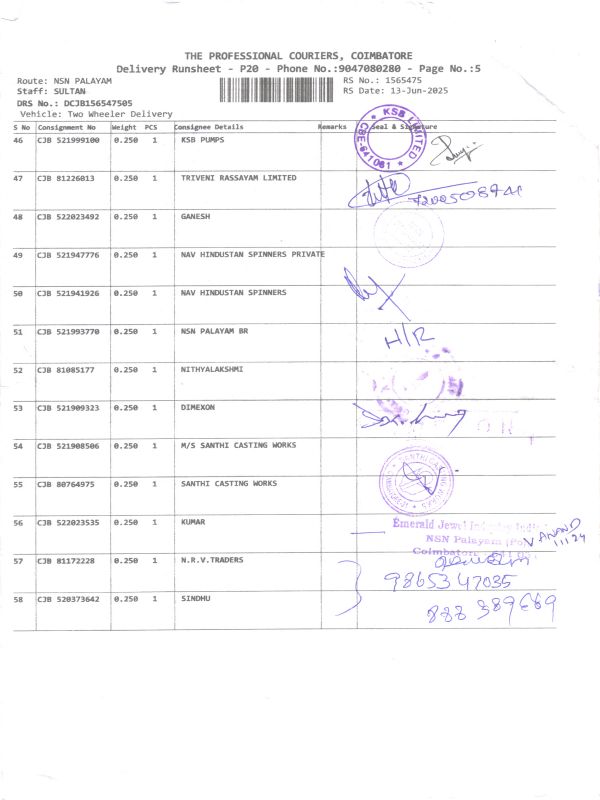 THE PROFESSIONAL COURIERS, COIMBATORE
Delivery Runsheet - P20 - Phone No.:9047080280 - Page No.:5
Route: NSN PALAYAM RS No.: 1565475
Staff: SULTAN RS Date: 13-Jun-2025
DRS No.: DCJB156547505
Vehicle: Two Wheeler Delivery
S No Consignment No Weight PCS Consignee Details Remarks Seal & Signature
46 CJB 521999100 0.250 1 KSB PUMPS
KSB LIMITED CBE-641001
47 CJB 81226013 0.250 1 TRIVENI RASSAYAM LIMITED
48 CJB 522023492 0.250 1 GANESH
49 CJB 521947776 0.250 1 NAV HINDUSTAN SPINNERS PRIVATE
50 CJB 521941926 0.250 1 NAV HINDUSTAN SPINNERS
51 CJB 521993770 0.250 1 NSN PALAYAM BR H/R
52 CJB 81085177 0.250 1 NITHYALAKSHMI
53 CJB 521909323 0.250 1 DIMEXON
54 CJB 521908506 0.250 1 M/S SANTHI CASTING WORKS
55 CJB 80764975 0.250 1 SANTHI CASTING WORKS
56 CJB 522023535 0.250 1 KUMAR Emerald Jewel
NSN Palayam (Po) V ANAND
Coimbatore 11124
57 CJB 81172228 0.250 1 N.R.V.TRADERS
9865347035
58 CJB 520373642 0.250 1 SINDHU